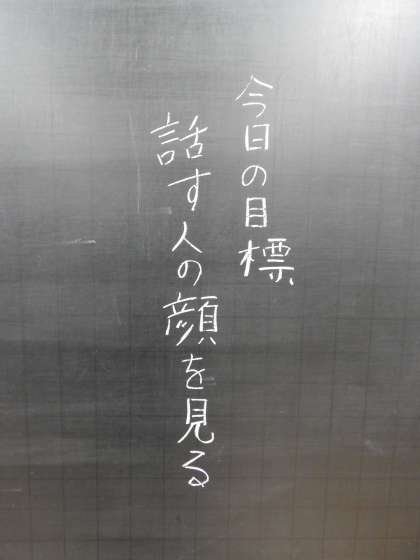 今日の目標
話す人の顔を見る